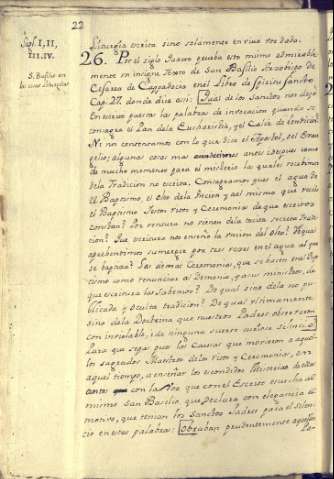 22
Sigl. I, II,
III. IV.
S. Basilio en
Liturgia escrita sino solamente en viva voz dada.
26. Por el siglo quarto prueba esto mismo admirable
mente un insigne texto de San Basilio Arzobispo de
Cesarea de Cappadocia en el Libro de Spiritu Sancto
Cap. 27. donde dice assi: Qual de los Sanctos nos dejò
en escrito puestas las palabras de invocacion quando se
consagra el Pan de la Eucharistia, y el Caliz de bendicion?
Ni nos contentamos con lo que dice el Apostol, ò el Evan
gelio; algunas cosas mas antes y despues como
de mucho momento para el misterio las quales recibimos
de la Tradicion no escrita. Consagramos pues el agua de
el Baptismo, el Oleo de la Uncion y al mismo que recibe
el Baptismo
constan? Por ventura no vienen de la tacita secreta Tradi-
cion? Que
aprehendimos sumergir por tres veces en el agua al que
se baptiza? Las demas Ceremonias, que se hacen en el Bap
tismo como renunciar al Demonio, y a sus ministros, de
que escritura las sabemos? De qual sino de la no pu
blicada y oculta tradicion? De qual ultimamente
sino de la Doctrina que nuestros Padres observaron
con inviolable, i de ninguna suerte curioso silencio
Para que sepas pues las Causas que movieron a aque-
llos sagrados Maestros de los Ritos y Ceremonias, en
aquel tiempo, a enseñar los escondidos Misterios
antes con la voz que con el Escrito escucha al
mismo San Basilio que declara con elegancia el
motivo, que tenian los Sanctos Padres para el Silen
cio en estas palabras: Obraban prudentemente aquellos